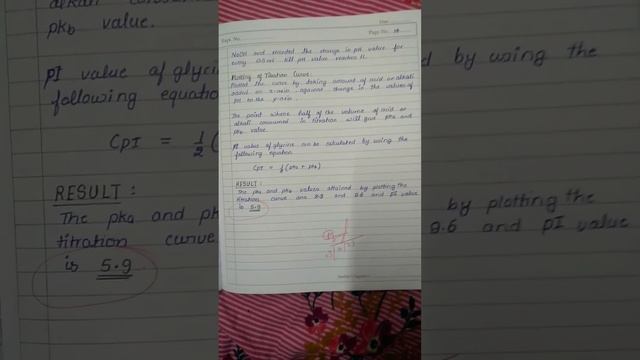 Expt. No.
Date
Page No. 18
NaOH and recorded the change in pH value for
every 0.5 ml till pH value reaches 11.
Plotting of Titration Curve:
Plotted the curve by taking amount of acid or alkali
added on x-axis against change in the values of
pH to the y-axis.
The point where half of the volume of acid or
alkali consumed in titration will give pka and
pkb value.
pI value of glycine can be calculated by using the
following equation
CpI = 1/2 (pka + pkb)
RESULT:
The pka and pkb values attained by plotting the
titration curve are 2.3 and 9.6 and pI value
is 5.9
pkb value.
pI value of glycine
following equation
CpI = 1/2 (
RESULT:
The pka and pk
titration curve
is 5.9
d by using the
by plotting the
9.6 and pI value